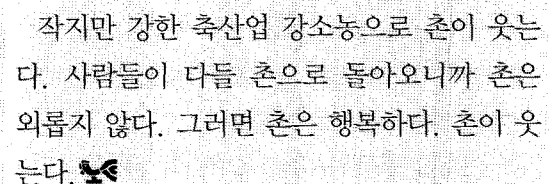 작지만 강한 축산업 강소농으로 촌이 웃는
다. 사람들이 다들 촌으로 돌아오니까 촌은
외롭지 않다. 그러면 촌은 행복하다. 촌이 웃
는다.